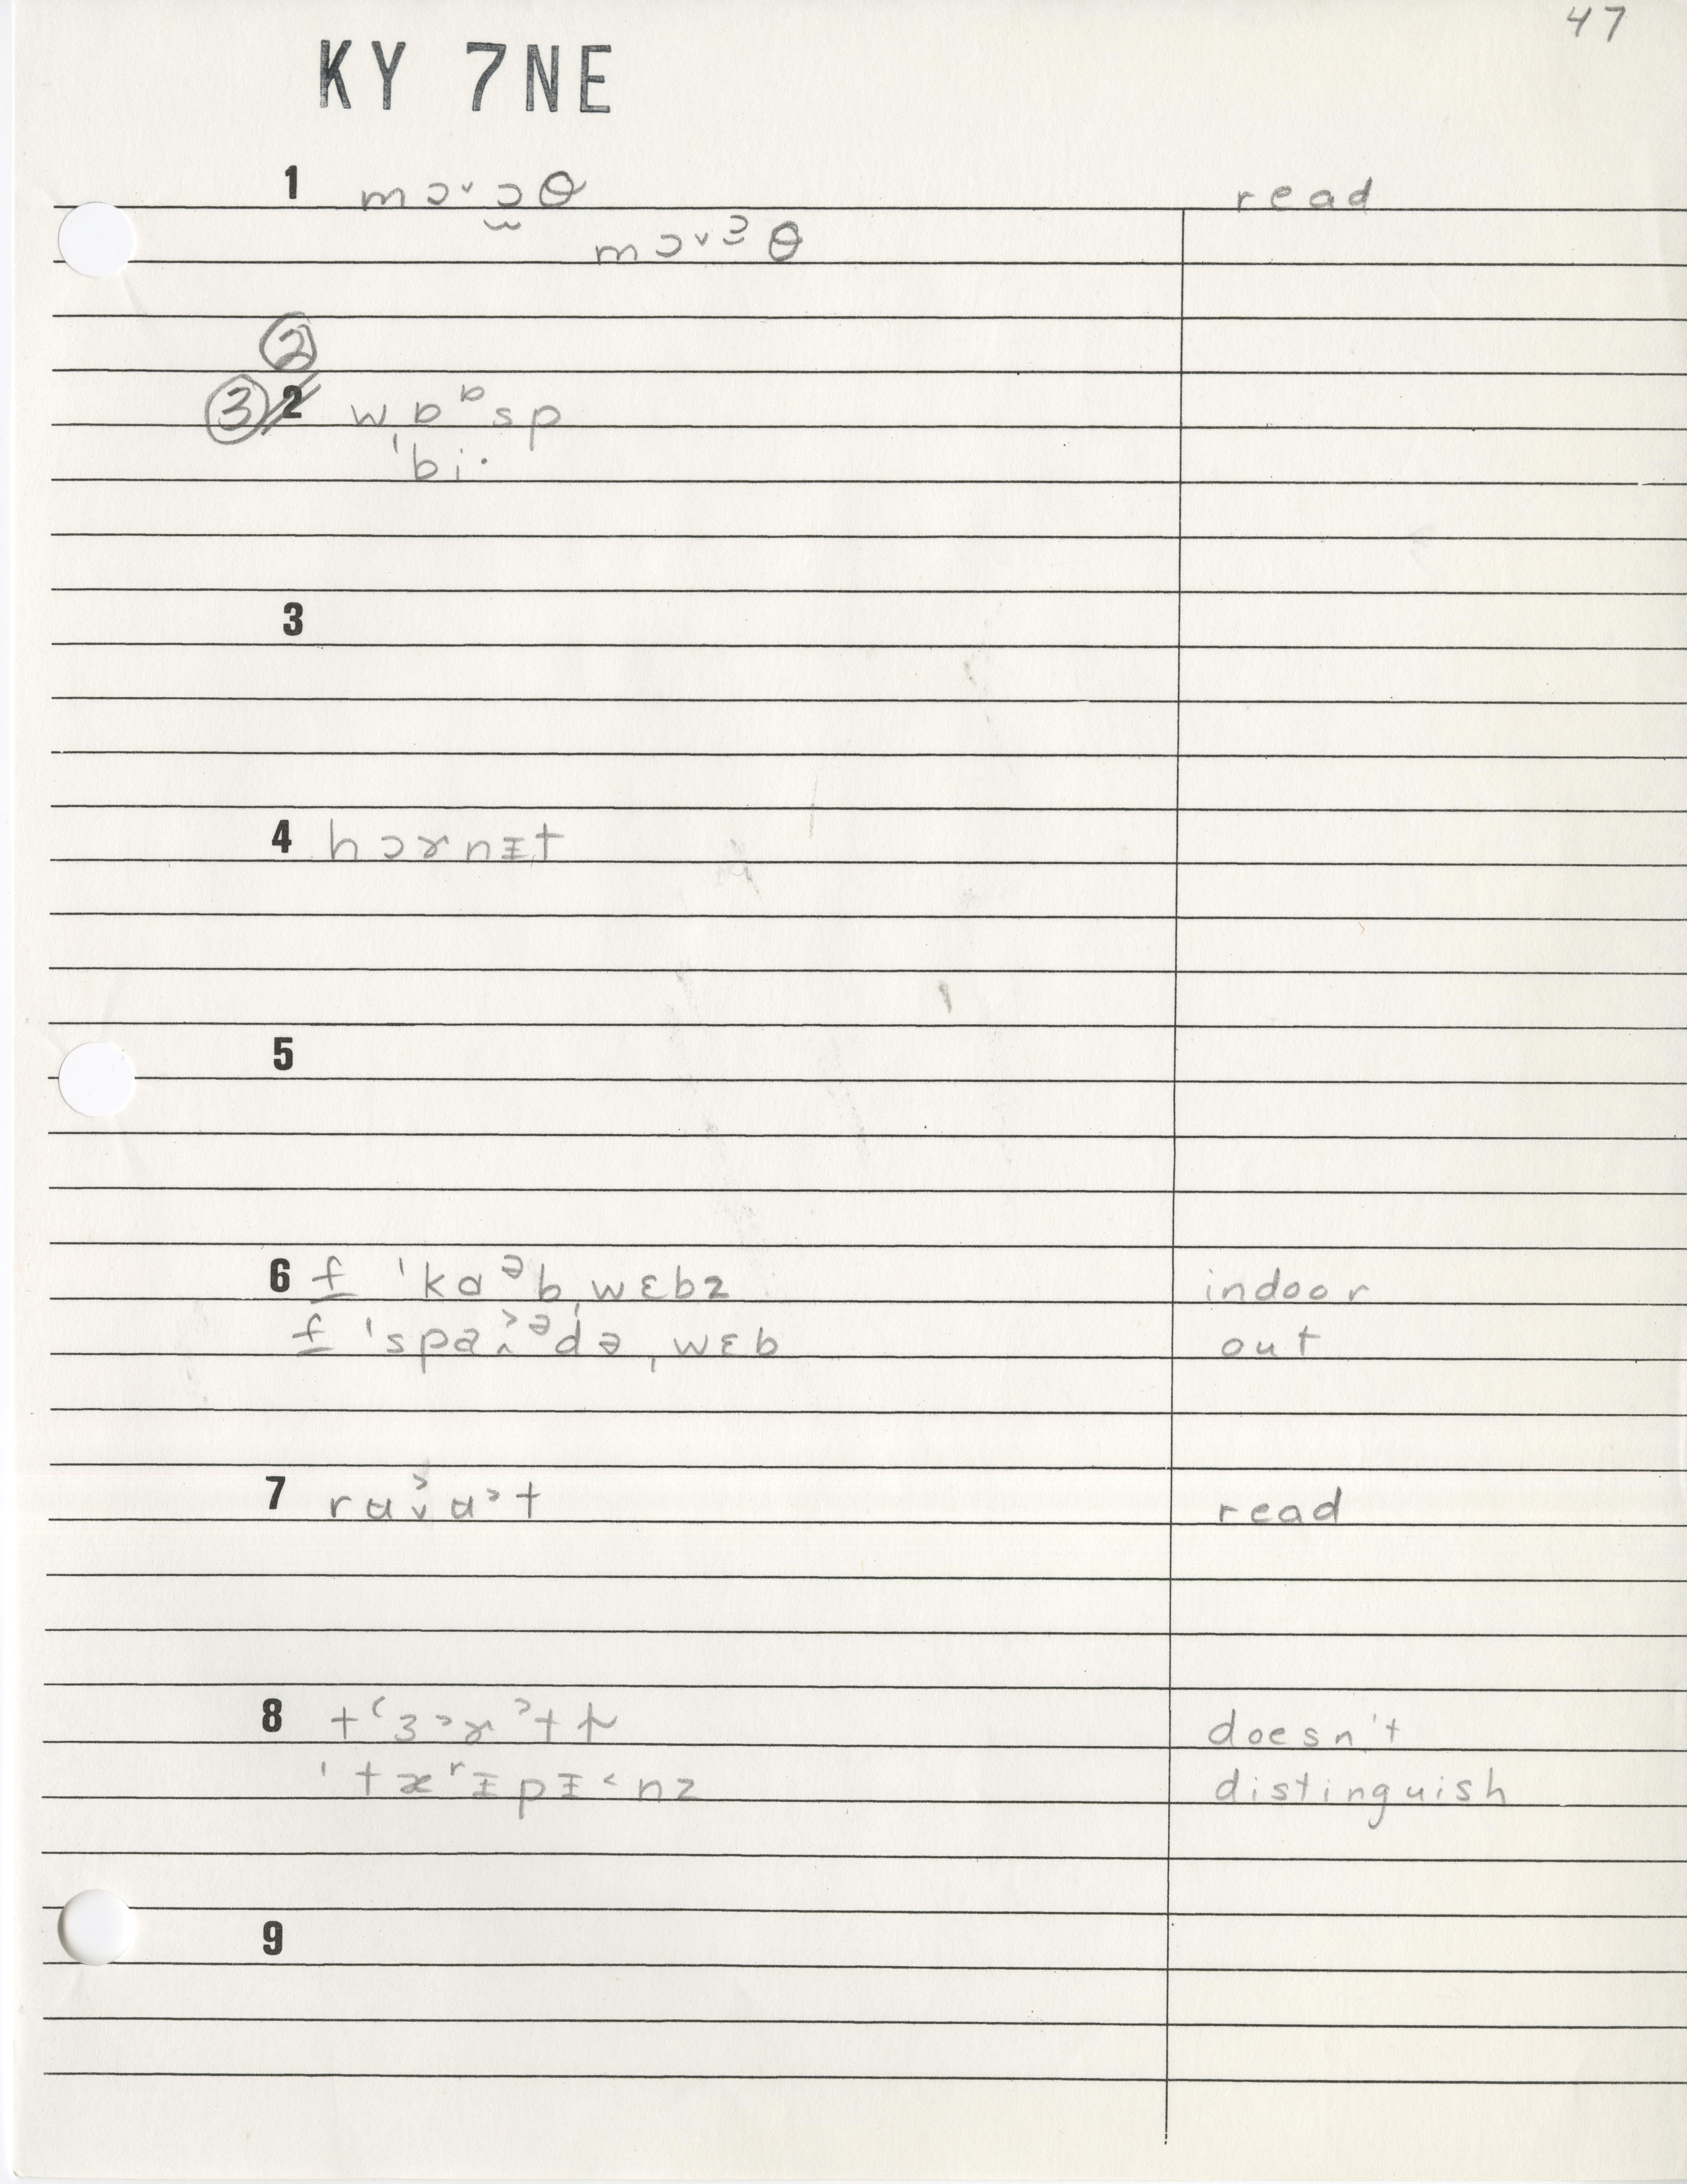 47
KY 7NE
1 mɔ˅ɔ̰θ read
mɔ˅ᵌθ
②
③ 2 wɒᶛsp
ˈbi·
3
4 hɔrnɪt
5
6 f ˈkɑᵊbˌwɛbz indoor
f ˈspaᵊdəˌwɛb out
7 rɑ˅ɑ˃t read
8 doesn't
distinguish
9